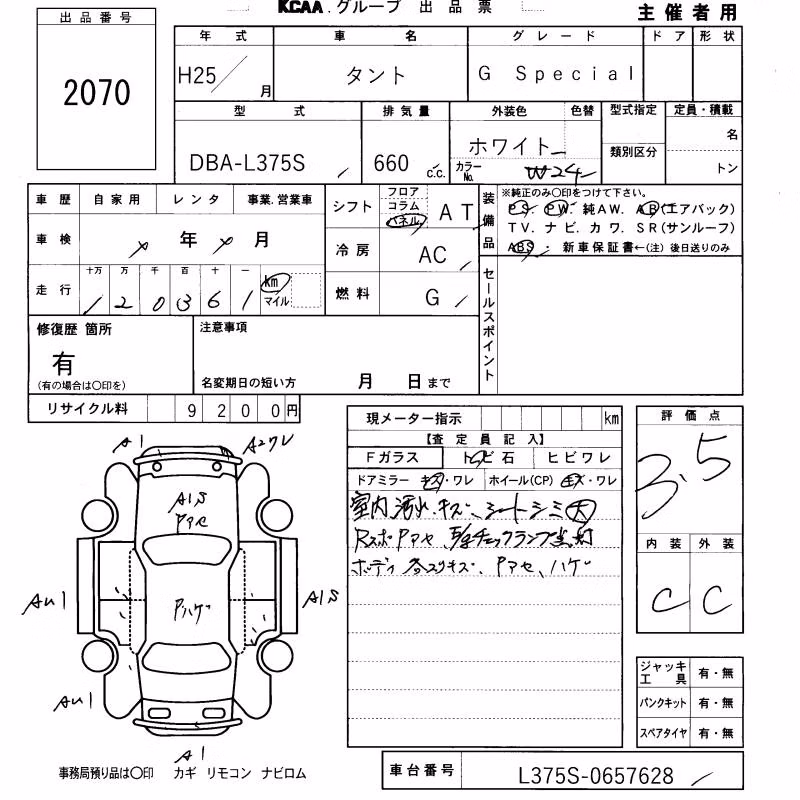 KCAA.グループ 出品票
主催者用
出品番号
2070
年式 車名 グレード ドア 形状
H25/ 月 タント G Special
型式 排気量 外装色 色替 型式指定 定員・積載
DBA-L375S 660 c.c. ホワイト 類別区分 名
カラーNo. W24 トン
車歴 自家用 レンタ 事業.営業車
シフト フロア コラム パネル AT
装備品 ※純正のみ〇印をつけて下さい。
PS. PW. 純AW. AB(エアバック)
TV. ナビ. カワ. SR(サンルーフ)
ABS ・ 新車保証書←(注) 後日送りのみ
車検 年 月
冷房 AC
走行 十万 万 千 百 十 一
1 2 0 3 6 1 km マイル
燃料 G
セールスポイント
修復歴 箇所
有
(有の場合は〇印を)
注意事項
名変期日の短い方 月 日まで
リサイクル料 9 2 0 0 円
現メーター指示 km
【査定員記入】
Fガラス トビ石 ヒビワレ
ドアミラー キズ・ワレ ホイール(CP) キズ・ワレ
室内 汚れ.キズ、シートシミ大
Rスポ Pアセ、 チェックランプ点灯
ボディ 各コリキズ、Pアセ、ハゲ
評価点
3.5
内装 外装
C C
A1 A2ワレ
A1S
Pアセ
AU1 Pハゲ A1S
AU1
A1
ジャッキ工具 有・無
パンクキット 有・無
スペアタイヤ 有・無
事務局預り品は〇印 カギ リモコン ナビロム
車台番号 L375S-0657628